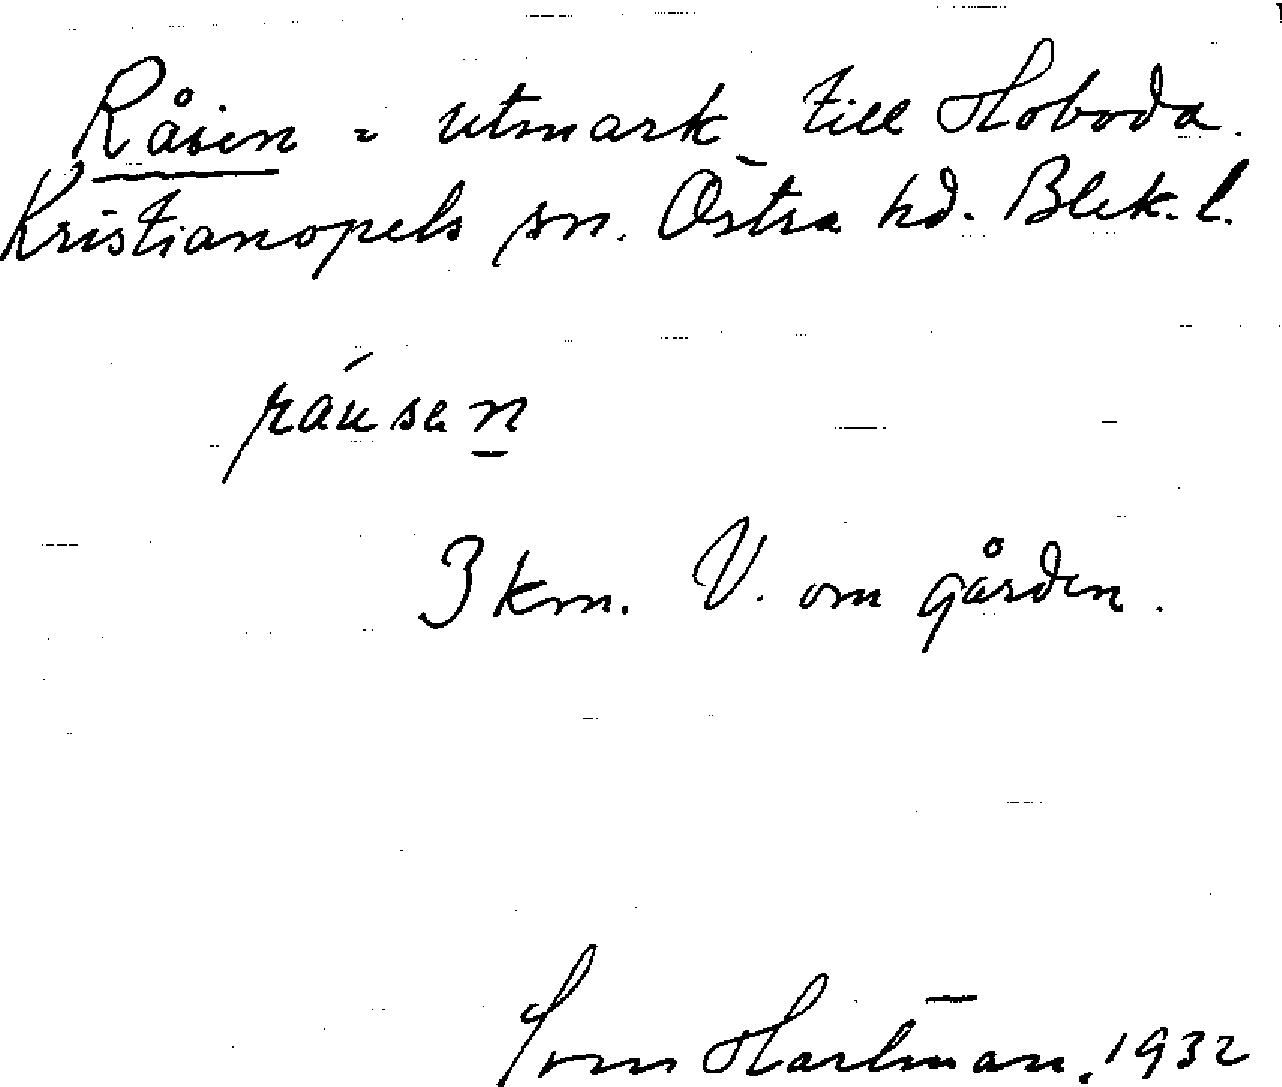 Råsen = utmark till Hoboda.
Kristianopels sn. Östra hd. Blek. l.
ráusen
3 km. V. om gården.
Hartman. 1932